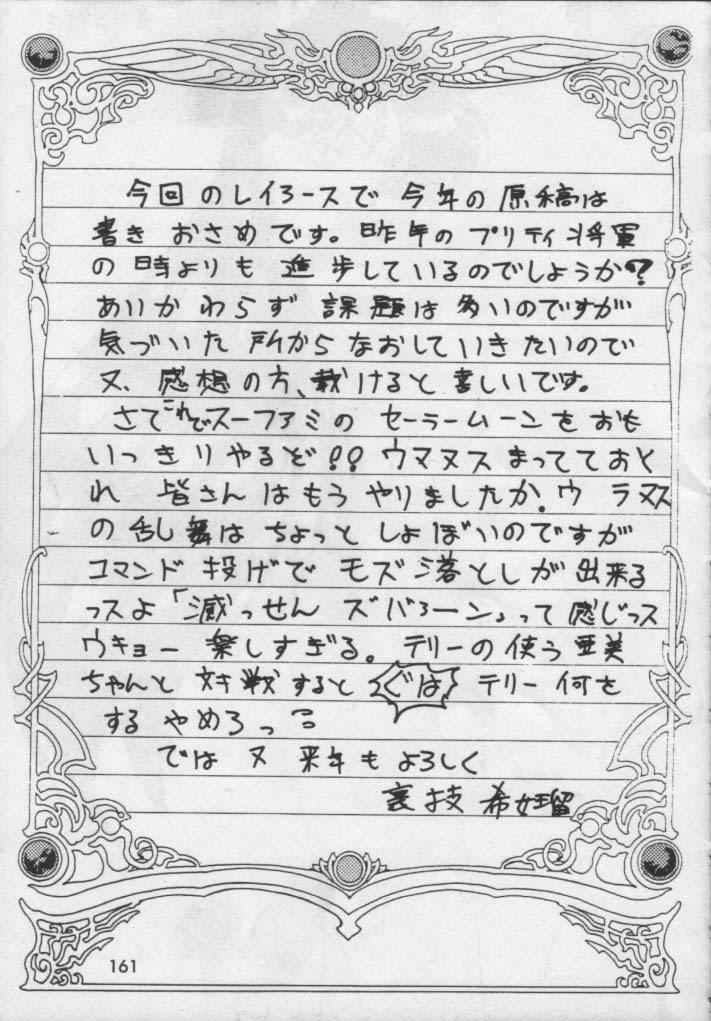 今回のレイろースで今年の原稿は
書きおさめです。昨年のプリティ将軍
の時よりも進歩しているのでしょうか?
あいかわらず課題は多いのですが
気づいた所からなおしていきたいので
又、感想の方、栽けると喜しいです。
さてこれでスーファミのセーラームーンをおも
いっきりやるぞ!!ウマヌスまってておく
れ 皆さんはもうやりましたか。ウラヌス
の乱舞はちょっとしょぼいのですが
コマンド投げでモズ落としが出来る
っスよ「滅っせんズバろーン」って感じっス
ウキョー楽しすぎる。テリーの使う亜美
ちゃんと対戦すると ぐは テリー何を
するやめろっ
では又来年もよろしく
裏技
161